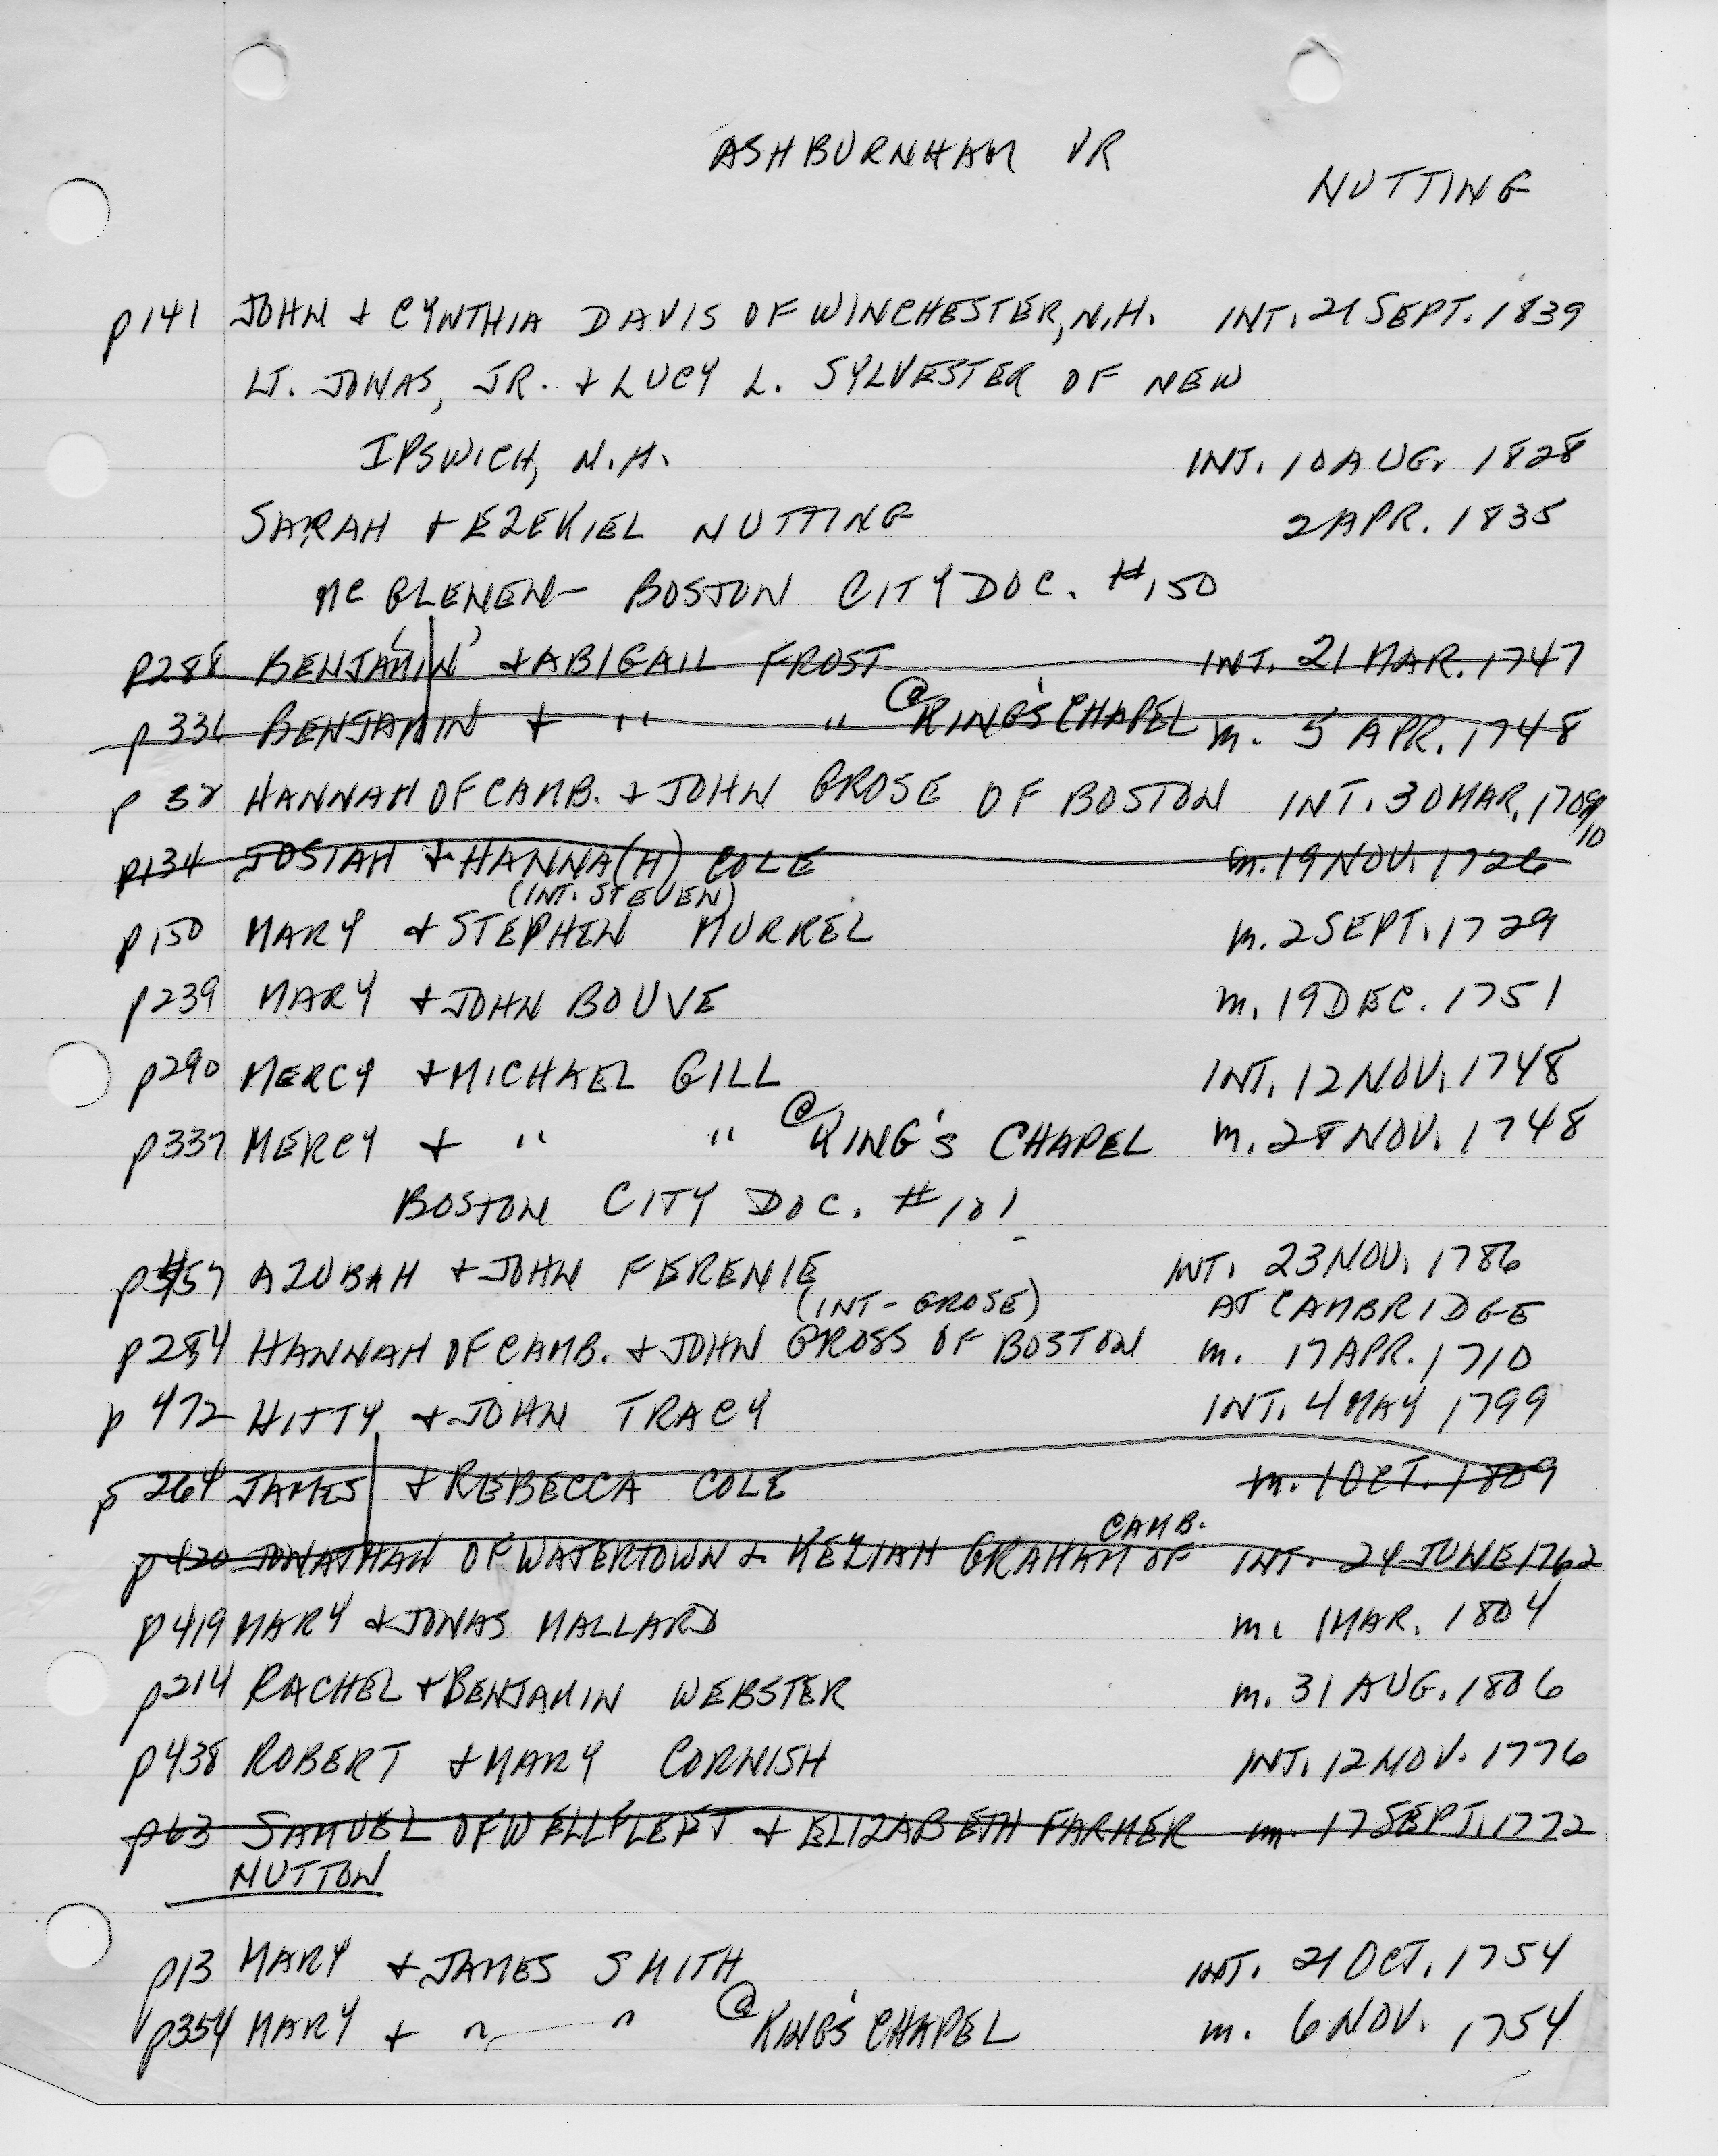 ASHBURNHAM VR
NUTTING
p141 JOHN + CYNTHIA DAVIS OF WINCHESTER, N.H. INT. 21 SEPT. 1839
LT. JONAS, JR. + LUCY L. SYLVESTER OF NEW
IPSWICH, N.H. INT. 10 AUG. 1828
SARAH + EZEKIEL NUTTING 2 APR. 1835
MCGLENEN - BOSTON CITY DOC. #150
p288 BENJAMIN + ABIGAIL FROST INT. 21 MAR. 1747
p336 BENJAMIN + " " @ KING'S CHAPEL m. 5 APR. 1748
p 32 HANNAH OF CAMB. + JOHN GROSE OF BOSTON INT. 30 MAR. 1709/10
p134 JOSIAH + HANNA(H) COLE m. 19 NOV. 1726
(INT. STEVEN)
p150 MARY + STEPHEN MURREL m. 2 SEPT. 1729
p239 MARY + JOHN BOUVE m. 19 DEC. 1751
p290 MERCY + MICHAEL GILL INT. 12 NOV. 1748
p337 MERCY + " " @ KING'S CHAPEL m. 28 NOV. 1748
BOSTON CITY DOC. #101
p457 AZUBAH + JOHN FERENIE INT. 23 NOV. 1786
(INT - GROSE) AT CAMBRIDGE
p284 HANNAH OF CAMB. + JOHN GROSS OF BOSTON m. 17 APR. 1710
p 472 HITTY + JOHN TRACY INT. 4 MAY 1799
p 264 JAMES + REBECCA COLE m. 1 OCT. 1809
CAMB.
p420 JONATHAN OF WATERTOWN + KEZIAH GRAHAM OF INT. 24 JUNE 1762
p419 MARY + JONAS MALLARD m. 1 MAR. 1804
p214 RACHEL + BENJAMIN WEBSTER m. 31 AUG. 1806
p438 ROBERT + MARY CORNISH INT. 12 NOV. 1776
p63 SAMUEL OF WELLFLEET + ELIZABETH FARMER m. 17 SEPT. 1772
NUTTON
p13 MARY + JAMES SMITH INT. 21 OCT. 1754
p354 MARY + " " @ KING'S CHAPEL m. 6 NOV. 1754